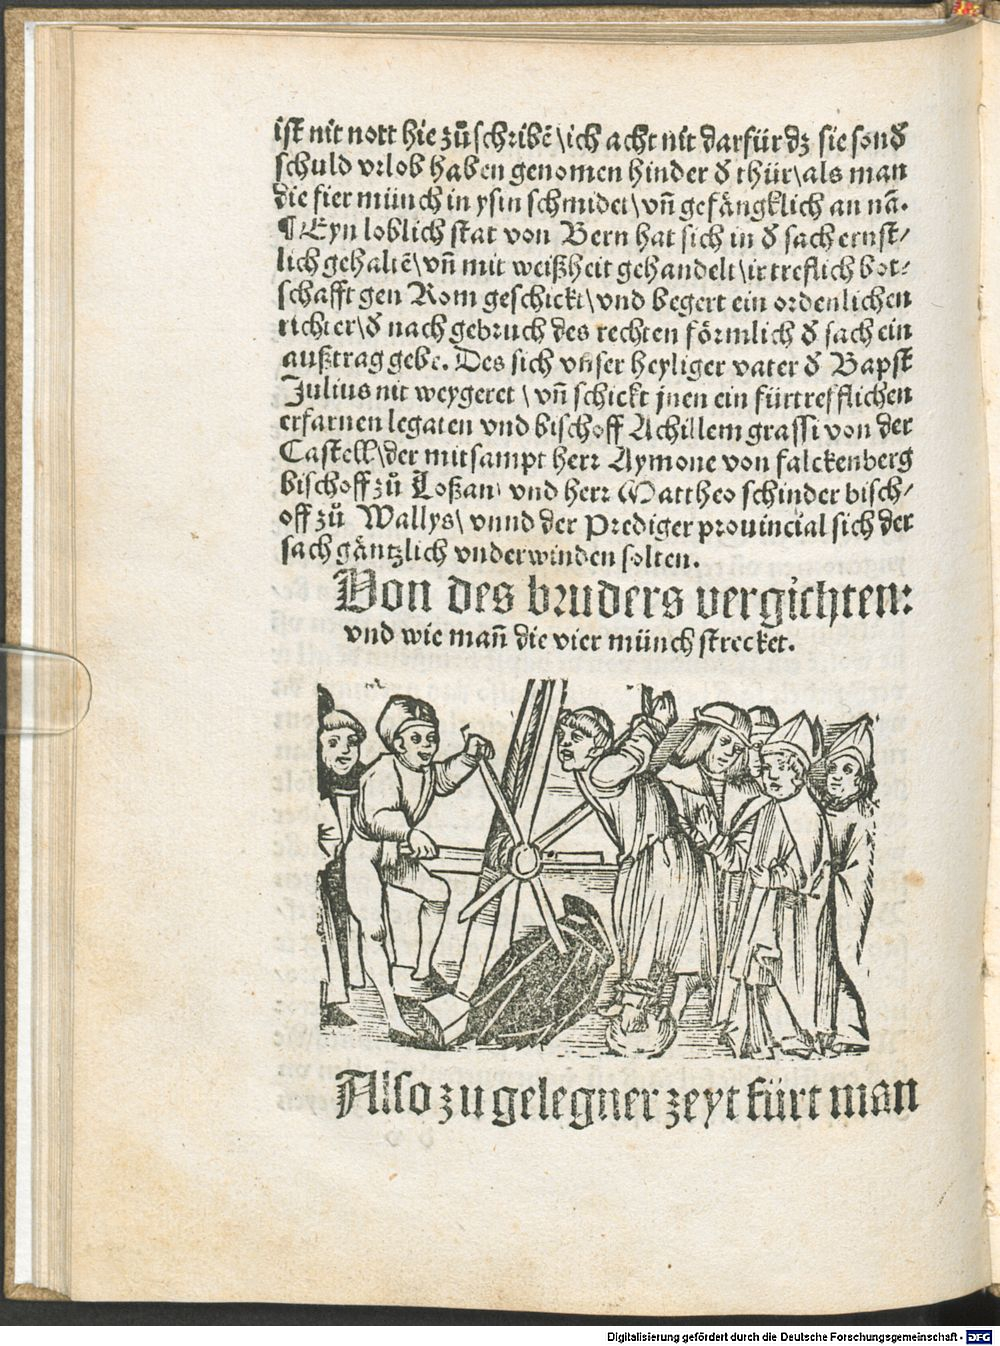 ist nit nott hie zů schribē \ ich acht nit darfür dz sie sond
schuld vrlob haben genomen hinder d̕ thür \ als man
die fier münch in ysin schmidet \ vñ gefängklich an nā.
¶ Eyn loblich stat von Bern hat sich in d̕ sach ernst/
lich gehaltē \ vñ mit weißheit gehandelt \ ir treflich bot/
schafft gen Rom geschickt \ vnd begert ein ordenlichen
richter \ d̕ nach gebruch des rechten förmlich d̕ sach ein
außtrag gebe. Des sich vnser heyliger vater d̕ Bapst
Julius nit weygeret \ vñ schickt jnen ein fürtrefflichen
erfarnen legaten vnd bischoff Achillem grassi von der
Castell \ der mitsampt herr Aymone von falckenberg
bischoff zů Loßan vnd herr Mattheo schinder bisch/
off zů Wallys \ vnnd der Prediger prouincial sich der
sach gäntzlich vnderwinden solten.
Von des bruders vergichten:
vnd wie mañ die vier münch strecket.
Also zu gelegner zeyt fürt man
Digitalisierung gefördert durch die Deutsche Forschungsgemeinschaft - DFG